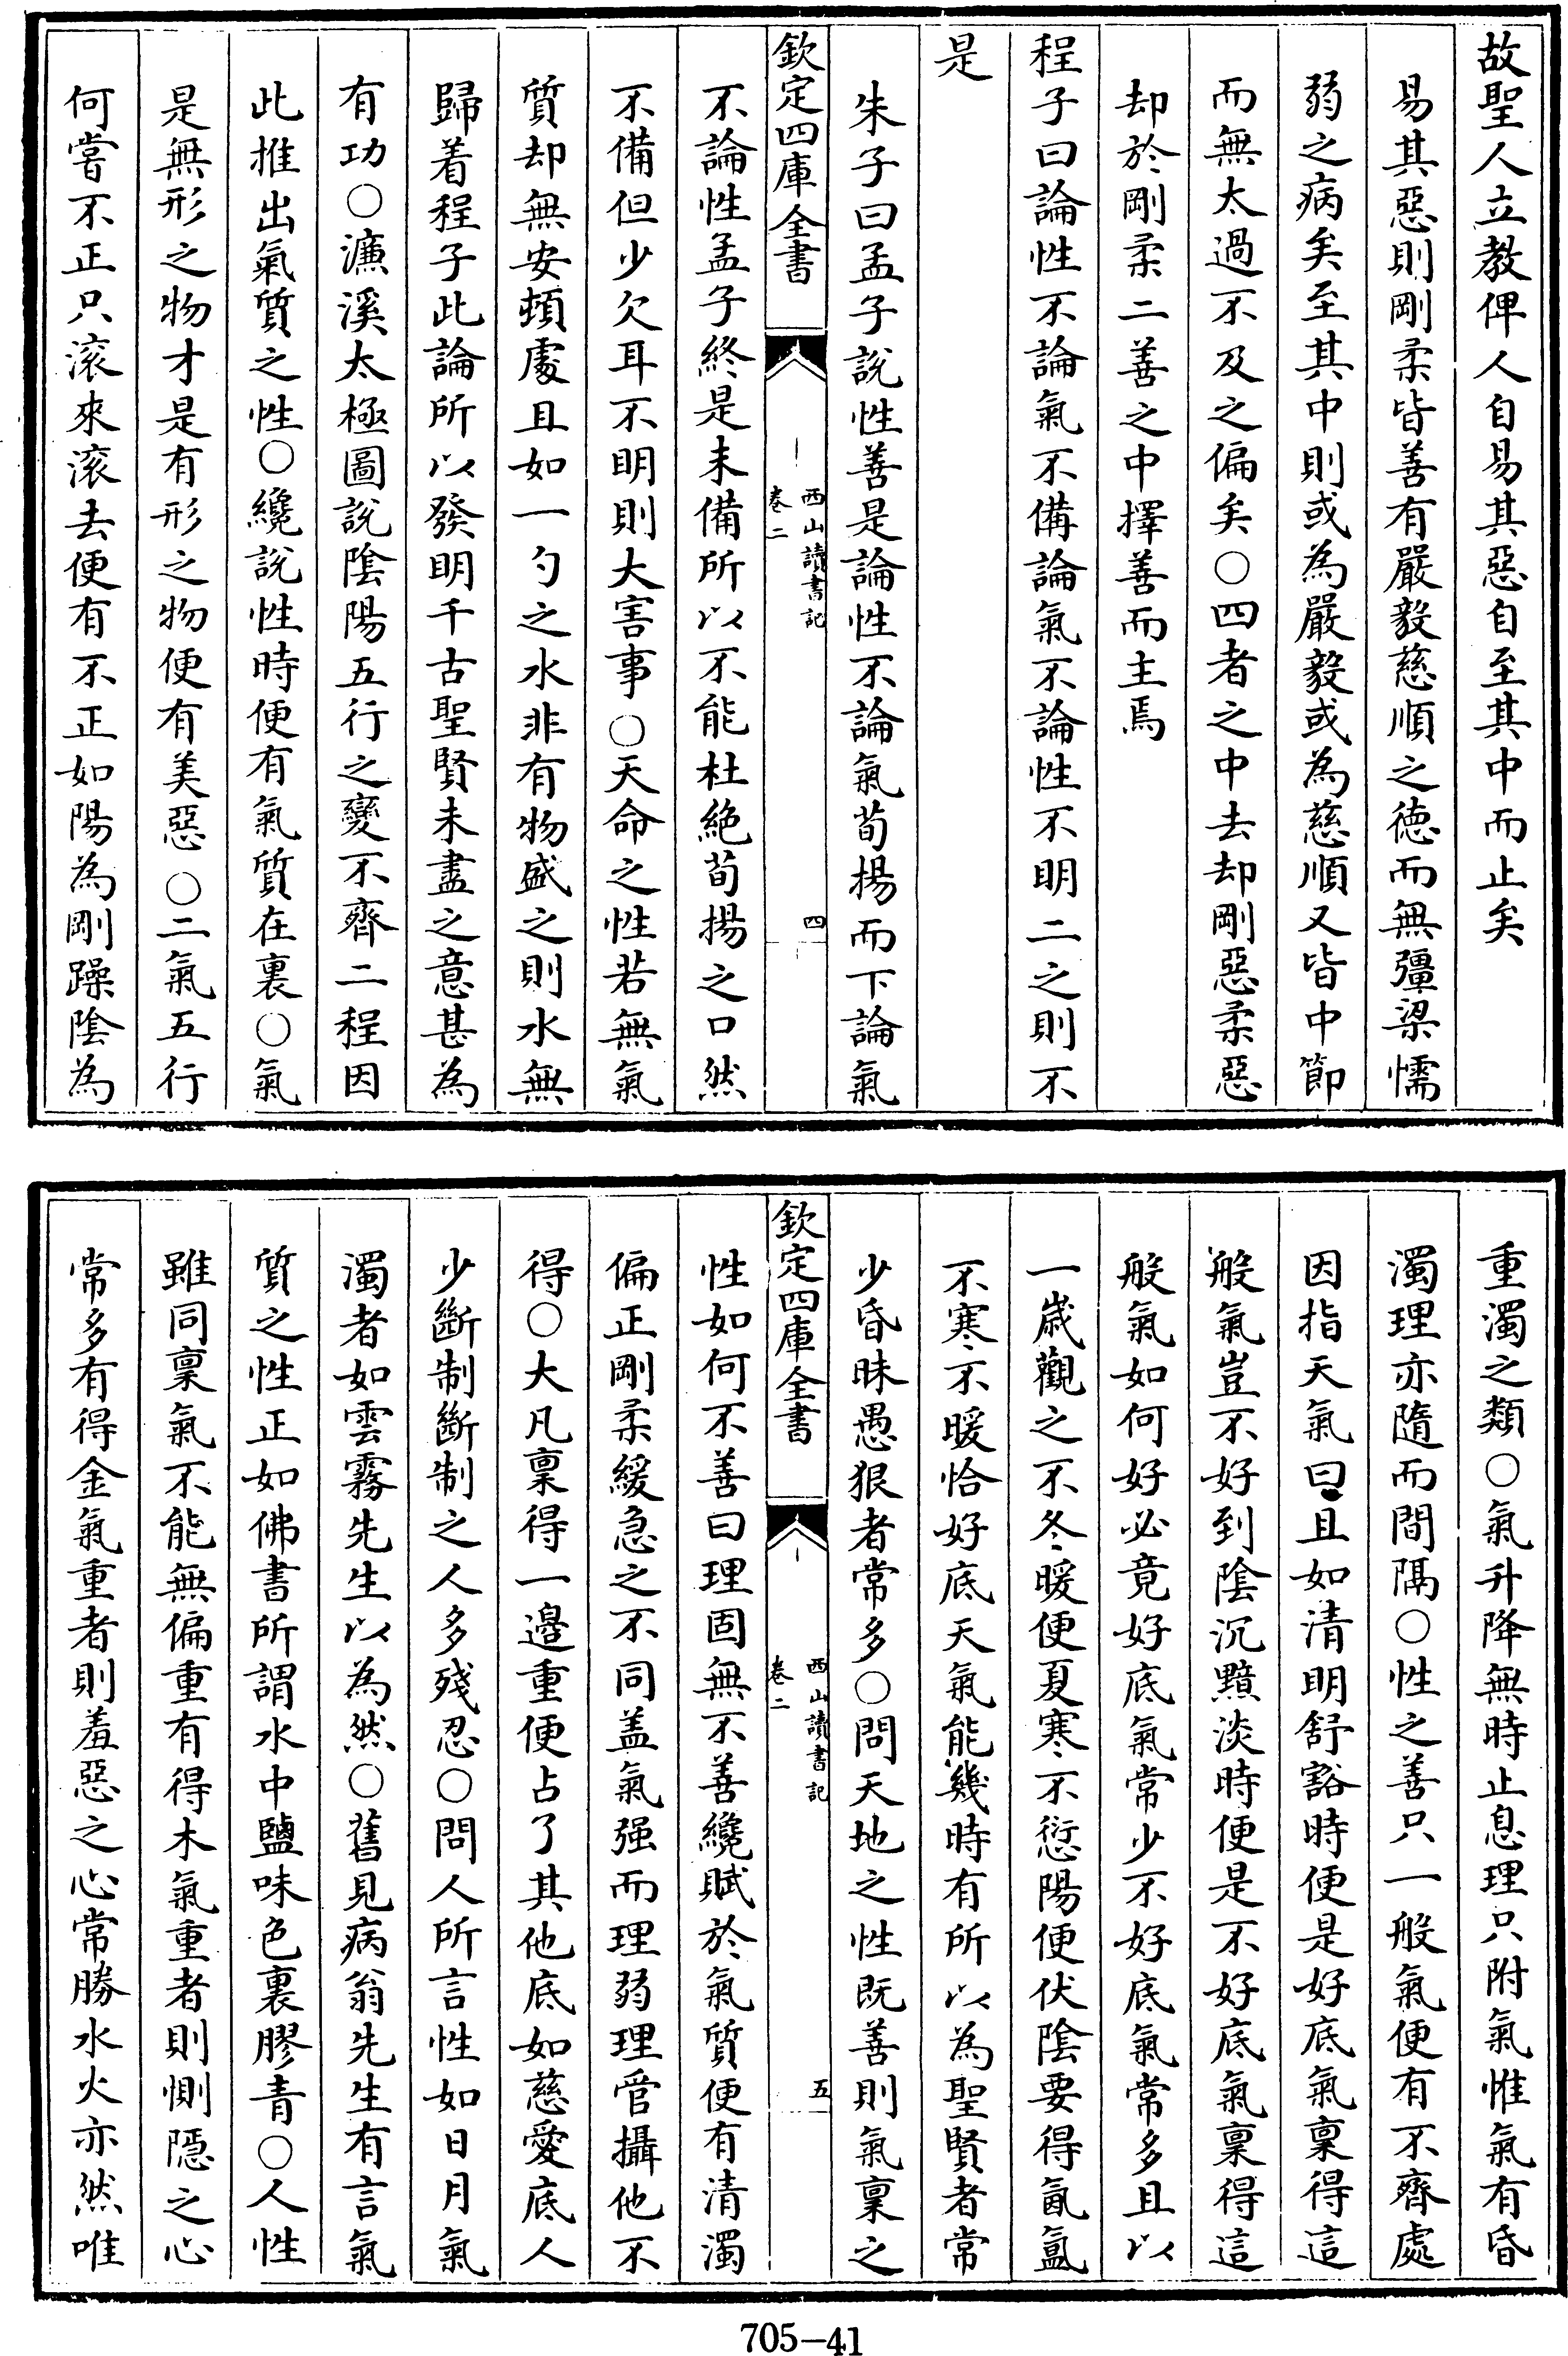 故聖人立教俾人自易其惡自至其中而止矣
易其惡則剛柔皆善有嚴毅慈順之徳而無彊梁懦
弱之病矣至其中則或為嚴毅或為慈順又皆中節
而無太過不及之偏矣○四者之中去却剛惡柔惡
却於剛柔二善之中擇善而主焉
程子曰論性不論氣不備論氣不論性不明二之則不
是
朱子曰孟子說性善是論性不論氣荀揚而下論氣
欽定四庫全書
西山讀書記
卷二
四
不論性孟子終是未備所以不能杜絶荀揚之口然
不備但少欠耳不明則大害事○天命之性若無氣
質却無安頓處且如一勺之水非有物盛之則水無
歸着程子此論所以發明千古聖賢未盡之意甚為
有功○濂溪太極圖說隂陽五行之變不齊二程因
此推出氣質之性○纔說性時便有氣質在裏○氣
是無形之物才是有形之物便有美惡○二氣五行
何嘗不正只滚來滚去便有不正如陽為剛躁隂為
重濁之類○氣升降無時止息理只附氣惟氣有昏
濁理亦隨而間隔○性之善只一般氣便有不齊處
因指天氣曰且如清明舒豁時便是好底氣稟得這
般氣豈不好到隂沉黯淡時便是不好底氣稟得這
般氣如何好必竟好底氣常少不好底氣常多且以
一嵗觀之不冬暖便夏寒不愆陽便伏隂要得氤氲
不寒不暖恰好底天氣能幾時有所以為聖賢者常
少昏昧愚狠者常多○問天地之性既善則氣稟之
欽定四庫全書
西山讀書記
卷二
五
性如何不善曰理固無不善纔賦於氣質便有清濁
偏正剛柔緩急之不同盖氣强而理弱理管攝他不
得○大凡稟得一邉重便占了其他底如慈愛底人
少斷制斷制之人多殘忍○問人所言性如日月氣
濁者如雲霧先生以為然○舊見病翁先生有言氣
質之性正如佛書所謂水中鹽味色裏膠青○人性
雖同稟氣不能無偏重有得木氣重者則惻隠之心
常多有得金氣重者則羞惡之心常勝水火亦然唯
705-41